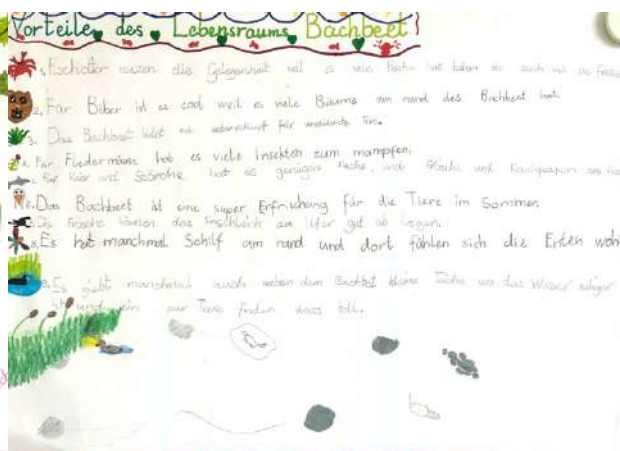 Vorteile des Lebensraums Bachbeet!
1. Fischotter nuzen die Gelegenheit weil es viele Fische hat haben sie auch viel zu fress
2. Für Biber ist es cool weil es viele Bäume am rand des Bachbeet hat.
3. Das Bachbeet bitet ein unterschlupf für Tire.
4. Für Fledermäuse hat es viele Insekten zum mampfen.
5. Für und Störche hat es genügen Fische, und Frösche und Kaulquapen am
6. Das Bachbeet ist eine super Erfrischung für die Tiere im Sommer.
7. Die Frösche können das Froschleich am Ufer gut ab legen.
8. Es hat manchmal Schilf am rand und dort fühlen sich die Enten woh
9. Es giebt manchmal auch neben dem Bachbet kleine wo das Wasser ruhiger
ist und Tiere finden dass toll.